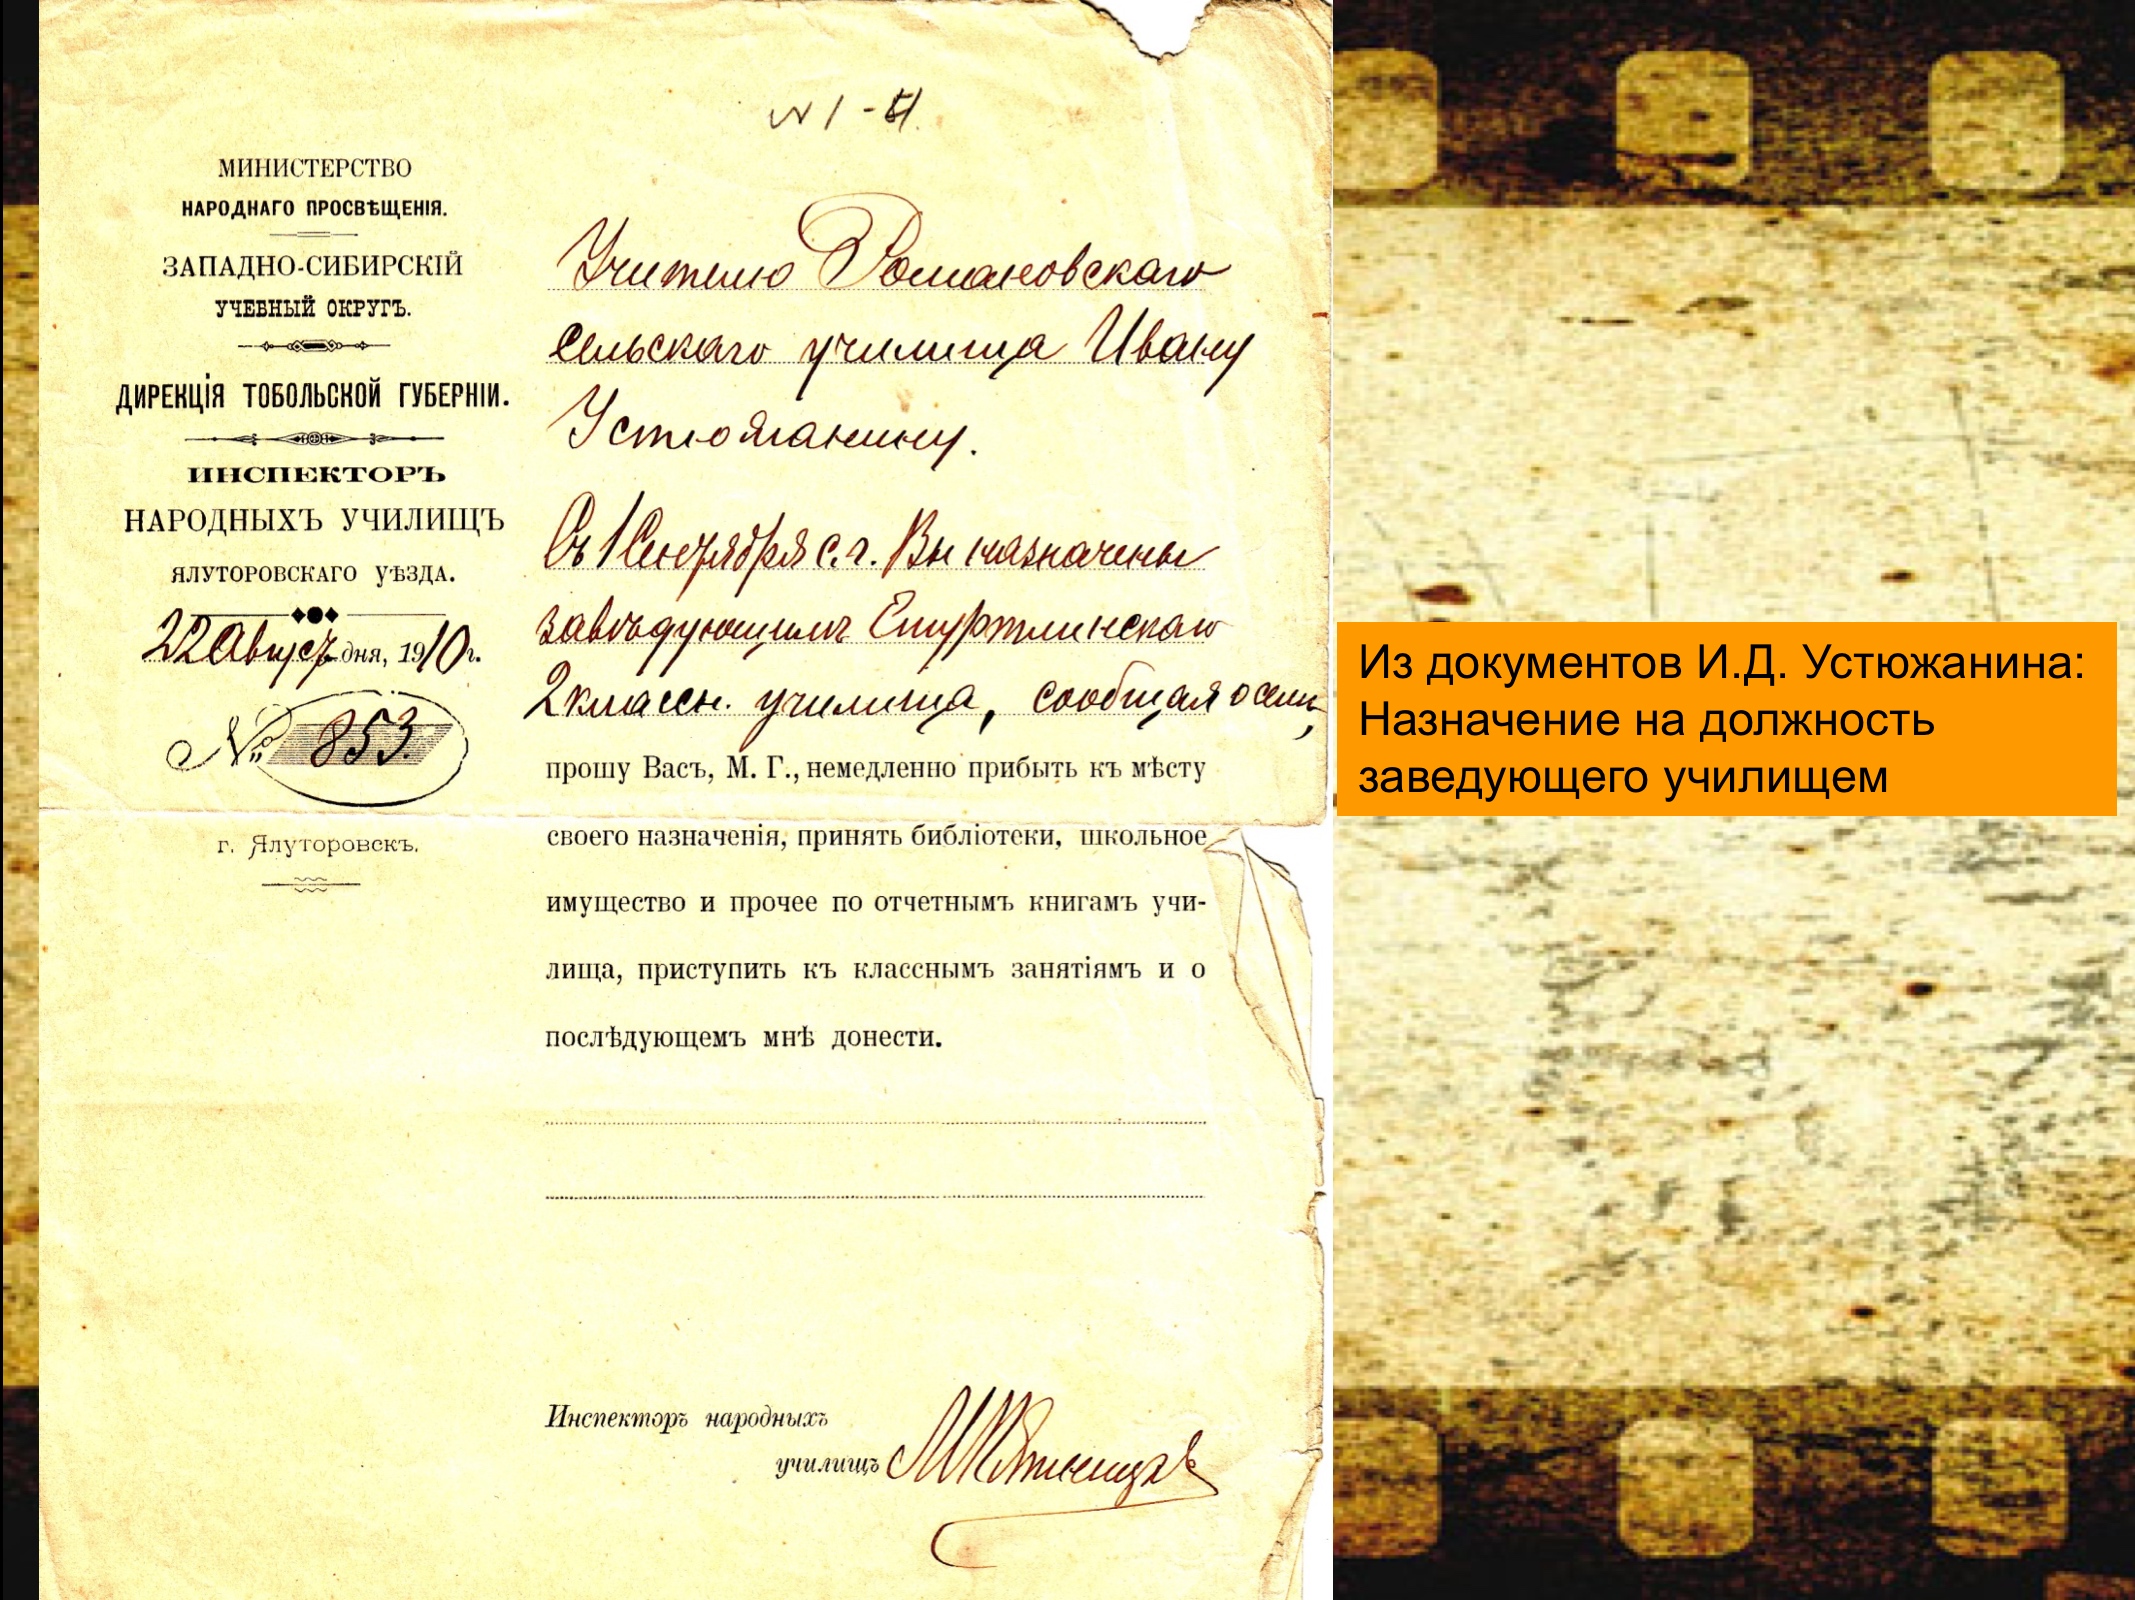 N 1-
МИНИСТЕРСТВО
НАРОДНАГО ПРОСВѢЩЕНІЯ.
ЗАПАДНО-СИБИРСКІЙ
УЧЕБНЫЙ ОКРУГЪ.
ДИРЕКЦІЯ ТОБОЛЬСКОЙ ГУБЕРНІИ.
ИНСПЕКТОРЪ
НАРОДНЫХЪ УЧИЛИЩЪ
ЯЛУТОРОВСКАГО УѢЗДА.
22 Август дня, 1910 г.
№ 853.
г. Ялуторовскъ.
Учителю Романовскаго
сельскаго училища Ивану
Устюжанину.
Съ 1 Сентября с.г. Вы назначены
завѣдующимъ Емуртлинскаго
2 классн. училища, сообщая о семъ,
прошу Васъ, М. Г., немедленно прибыть къ мѣсту
своего назначенія, принять библіотеки, школьное
имущество и прочее по отчетнымъ книгамъ учи-
лища, приступить къ класснымъ занятіямъ и о
послѣдующемъ мнѣ донести.
Инспекторъ народныхъ
училищъ
Из документов И.Д. Устюжанина:
Назначение на должность
заведующего училищем